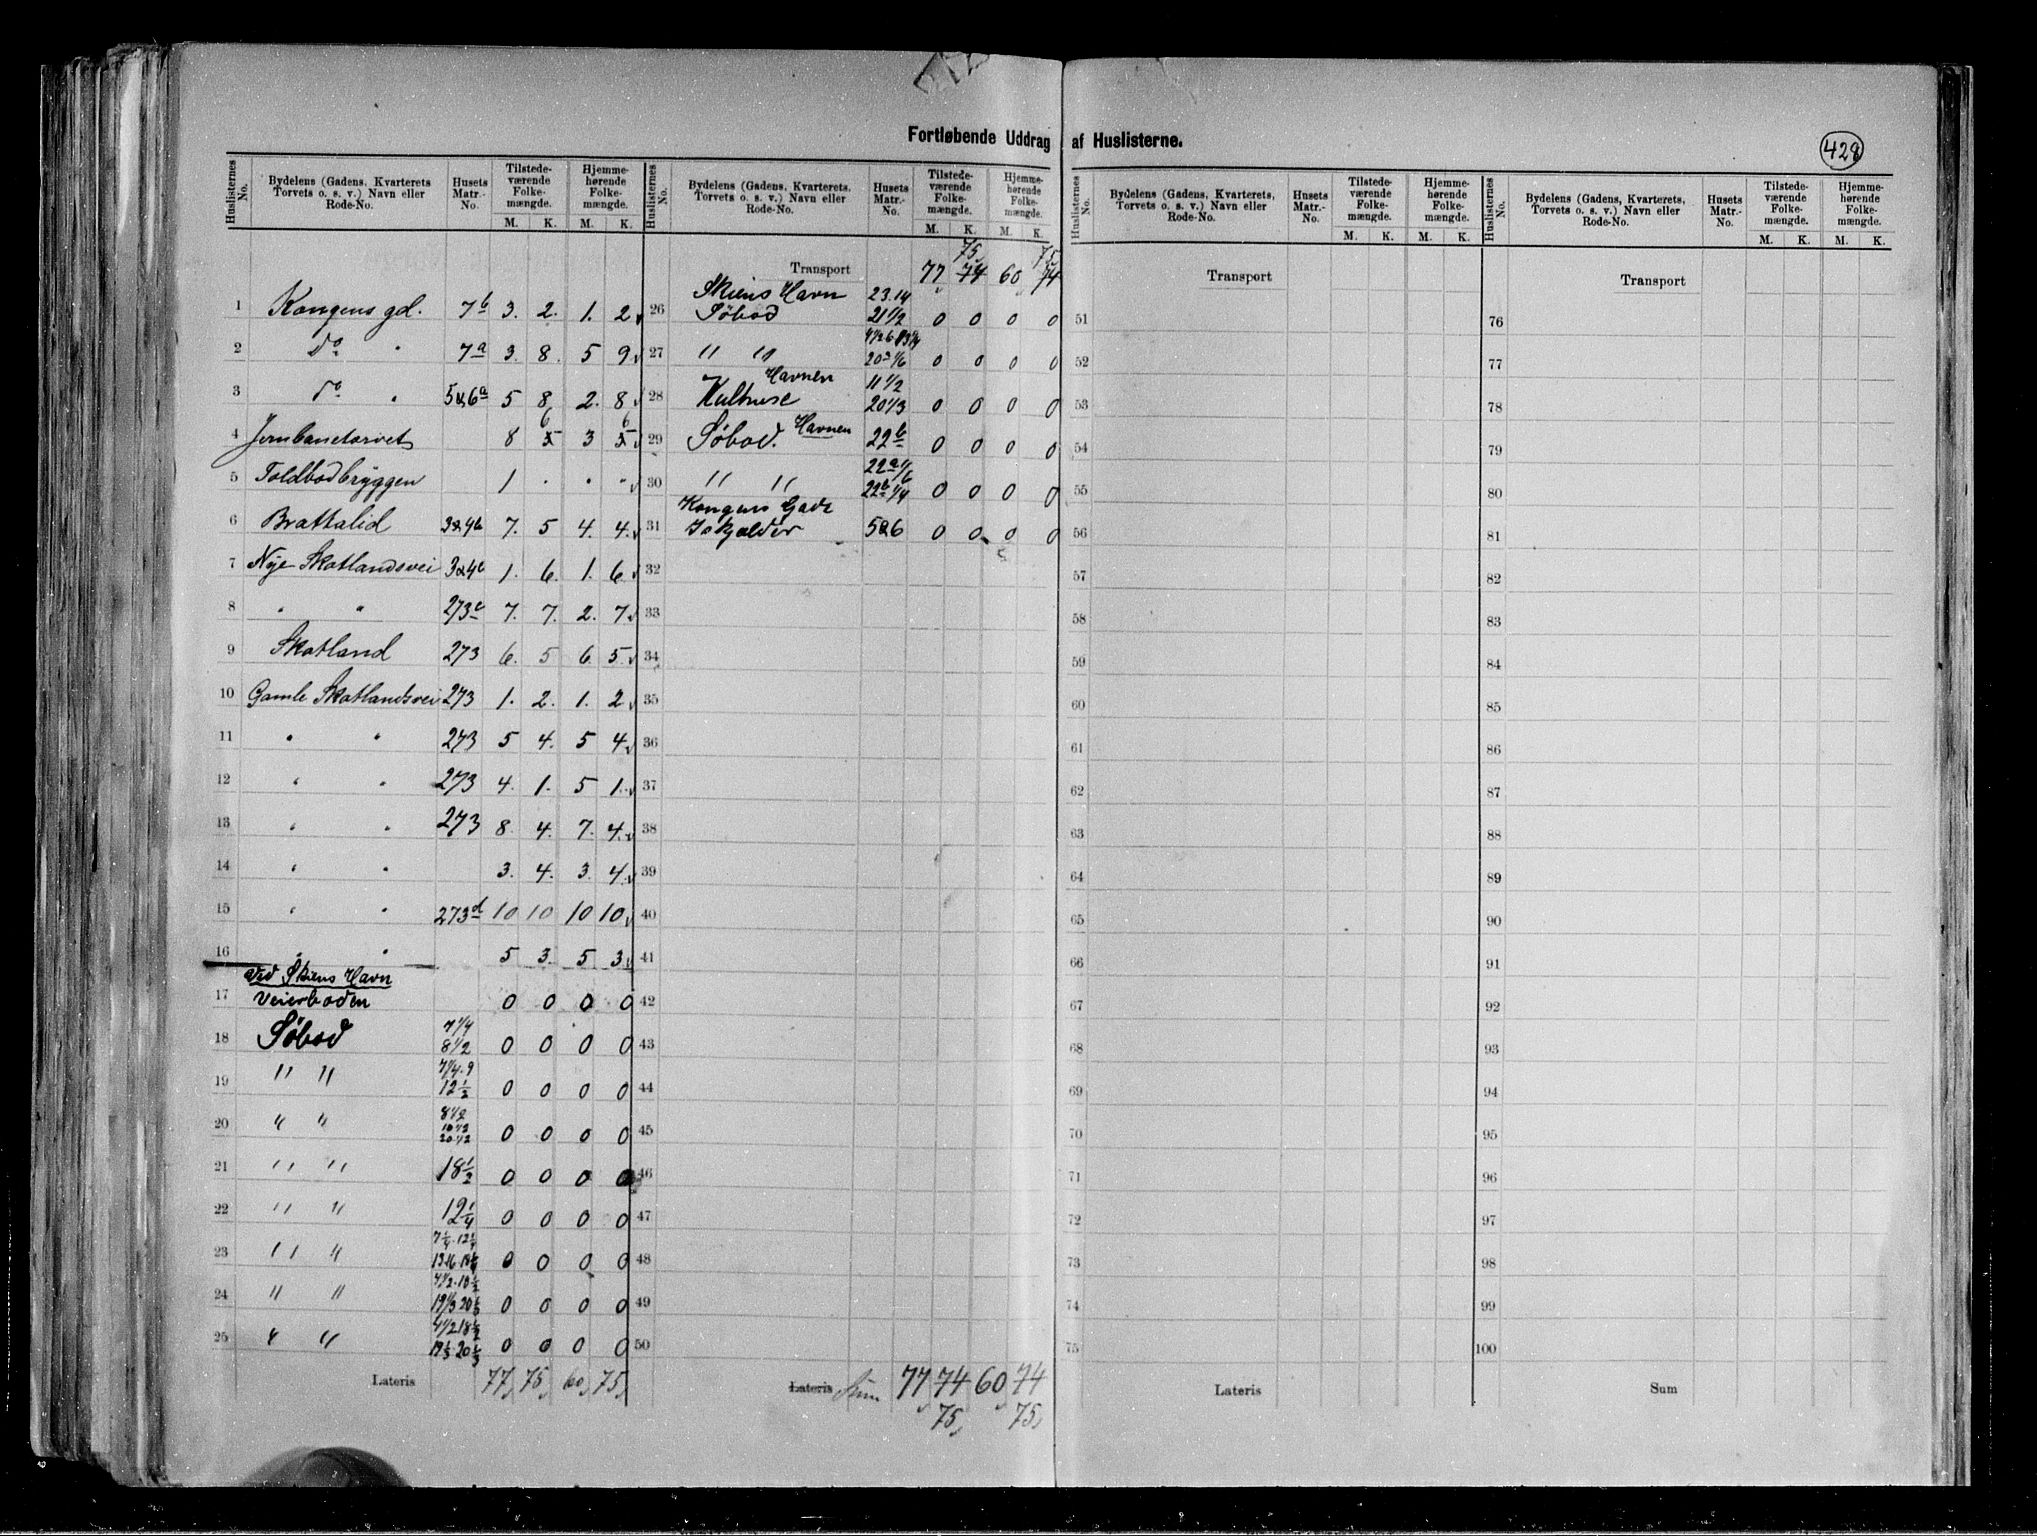 Fortløbende Uddrag af Huslisterne.
428
Huslisternes No. | Bydelens (Gadens, Kvarterets Torvets o. s. v.) Navn eller Rode-No. | Husets Matr.-No. | Tilstedeværende Folkemængde. M. K. | Hjemmehørende Folkemængde. M. K.
1 Kongens gd. 7b 3. 2. 1. 2
2 Do " 7a 3. 8. 5 9
3 Do " 5&6a 5 8 2. 8
4 Jernbanetorvet 8 5 6 3 5 6
5 Toldbodbryggen 1 . . .
6 Brattalid 3&4b 7. 5 4. 4.
7 Nye Skotlandsvei 3&4c 1. 6. 1. 6
8 " " 273c 7. 7. 2. 7
9 Skotland 273 6. 5 6. 5.
10 Gamle Skotlandsvei 273 1. 2. 1. 2
11 " " 273 5 4. 5 4
12 " " 273 4. 1. 5 1.
13 " " 273 8. 4. 7. 4.
14 " " 3. 4. 3. 4
15 " " 273d 10 10 10 10
16 " " 5 3. 5 3
Ved Skiens Havn
17 Veierboden 0 0 0 0
18 Søbod 7 1/4 8 1/2 0 0 0 0
19 " " 7 1/4 . 9 12 1/2 0 0 0 0
20 " " 8 1/2 10 1/2 20 1/2 0 0 0 0
21 " " 18 1/2 0 0 0 0
22 " " 12 1/4 0 0 0 0
23 " " 7 1/4 . 12 1/4 0 0 0 0
24 " " 19 1/3 20 1/3 0 0 0 0
25 " " 19 1/3 . 20 1/3 0 0 0 0
Lateris 77 75 60 75
Huslisternes No. | Bydelens (Gadens, Kvarterets, Torvets o. s. v.) Navn eller Rode-No. | Husets Matr.-No. | Tilstedeværende Folkemængde. M. K. | Hjemmehørende Folkemængde. M. K.
Transport 77 74 75 60 74 75
26 Skiens Havn Søbod 23.14 21 1/2 0 0 0 0
27 " " 0 0 0 0
28 Kulhuse Havnen 11 1/2 20 1/3 0 0 0 0
29 Søbod. Havnen 22b 0 0 0 0
30 " " 22a 1/6 22b 1/4 0 0 0 0
31 Kongens Gade Iskjælder 5&6 0 0 0 0
32
33
34
35
36
37
38
39
40
41
42
43
44
45
46
47
48
49
50
Lateris Sum 77 74 60 74
75 75
Huslisternes No. | Bydelens (Gadens, Kvarterets, Torvets o. s. v.) Navn eller Rode-No. | Husets Matr.-No. | Tilstedeværende Folkemængde. M. K. | Hjemmehørende Folkemængde. M. K.
Transport
51
52
53
54
55
56
57
58
59
60
61
62
63
64
65
66
67
68
69
70
71
72
73
74
75
Lateris
Huslisternes No. | Bydelens (Gadens, Kvarterets, Torvets o. s. v.) Navn eller Rode-No. | Husets Matr.-No. | Tilstedeværende Folkemængde. M. K. | Hjemmehørende Folkemængde. M. K.
Transport
76
77
78
79
80
81
82
83
84
85
86
87
88
89
90
91
92
93
94
95
96
97
98
99
100
Sum